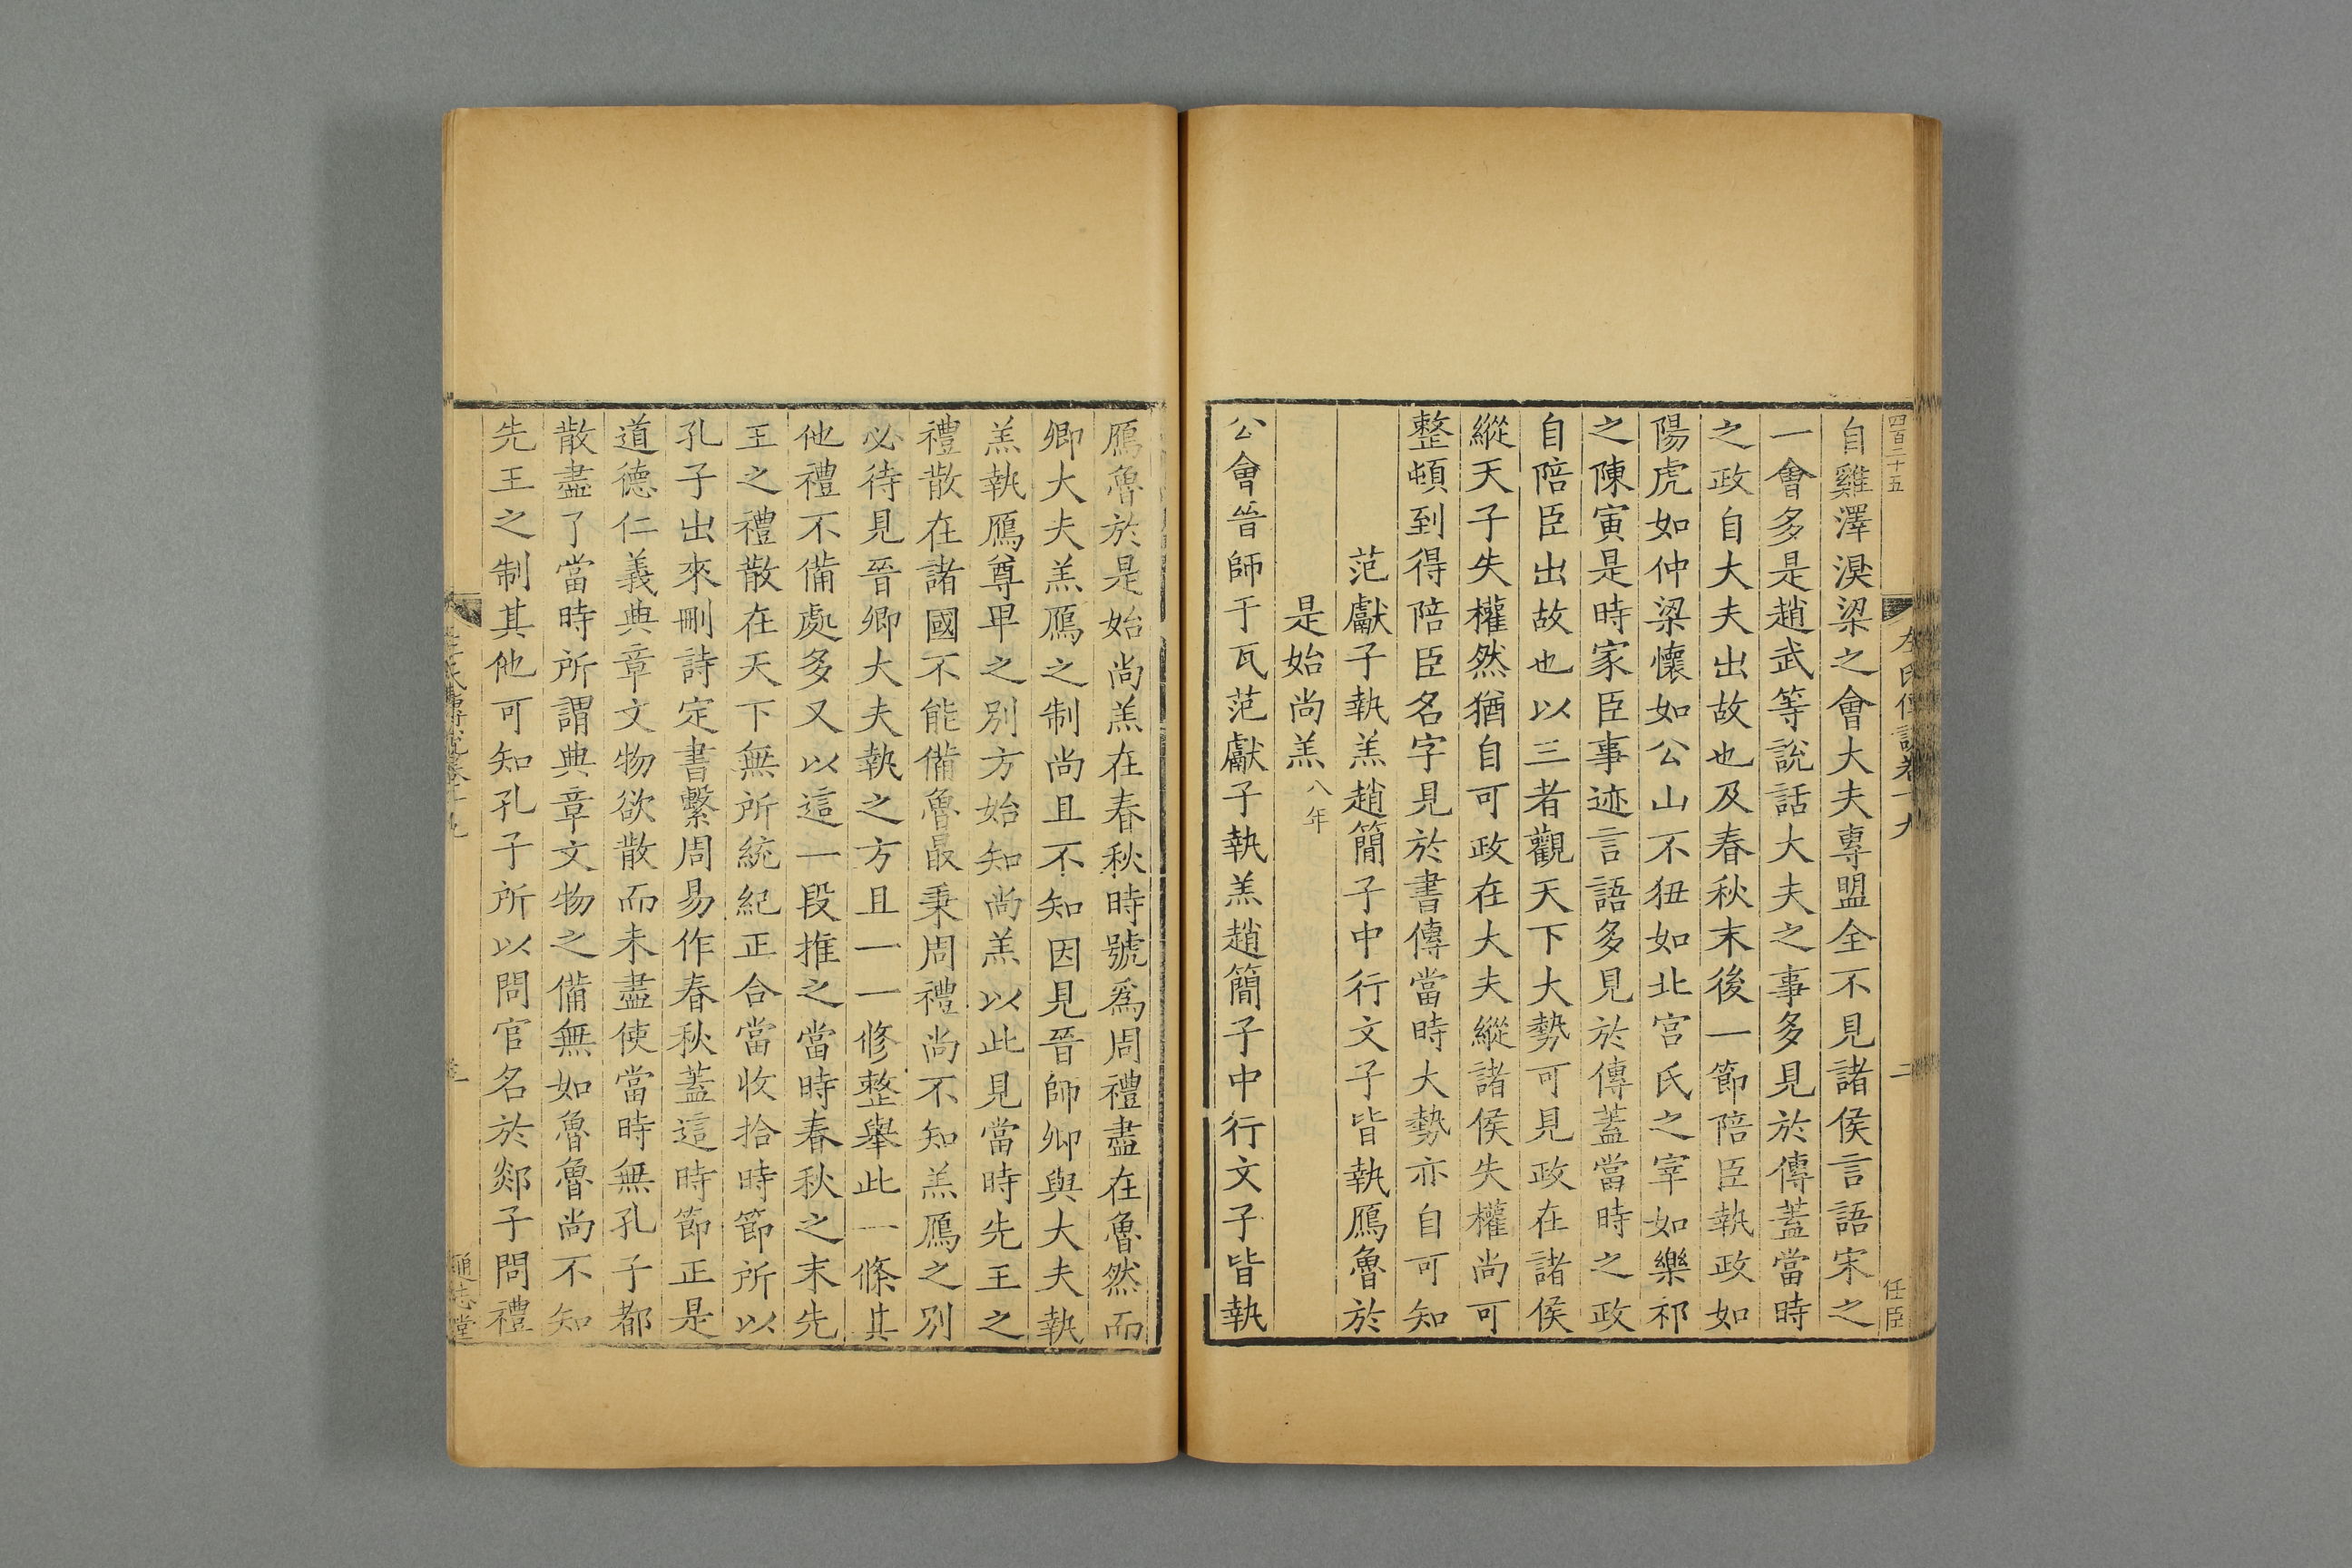 四百二十五
左氏傳說卷十九
二
任臣
自雞澤湨梁之會大夫專盟全不見諸侯言語宋之
一會多是趙武等說話大夫之事多見於傳蓋當時
之政自大夫出故也及春秋末後一節陪臣執政如
陽虎如仲梁懷如公山不狃如北宮氏之宰如樂祁
之陳寅是時家臣事迹言語多見於傳蓋當時之政
自陪臣出故也以三者觀天下大勢可見政在諸侯
縱天子失權然猶自可政在大夫縱諸侯失權尚可
整頓到得陪臣名字見於書傳當時大勢亦自可知
范獻子執羔趙簡子中行文子皆執鴈魯於
是始尚羔八年
公會晉師于瓦范獻子執羔趙簡子中行文子皆執
鴈魯於是始尚羔在春秋時號爲周禮盡在魯然而
卿大夫羔鴈之制尚且不知因見晉師卿與大夫執
羔執鴈尊卑之別方始知尚羔以此見當時先王之
禮散在諸國不能備魯最秉周禮尚不知羔鴈之別
必待見晉卿大夫執之方且一一修整舉此一條其
他禮不備處多又以這一段推之當時春秋之末先
王之禮散在天下無所統紀正合當收拾時節所以
孔子出來刪詩定書繫周易作春秋蓋這時節正是
道德仁義典章文物欲散而未盡使當時無孔子都
散盡了當時所謂典章文物之備無如魯魯尚不知
先王之制其他可知孔子所以問官名於郯子問禮
通志堂